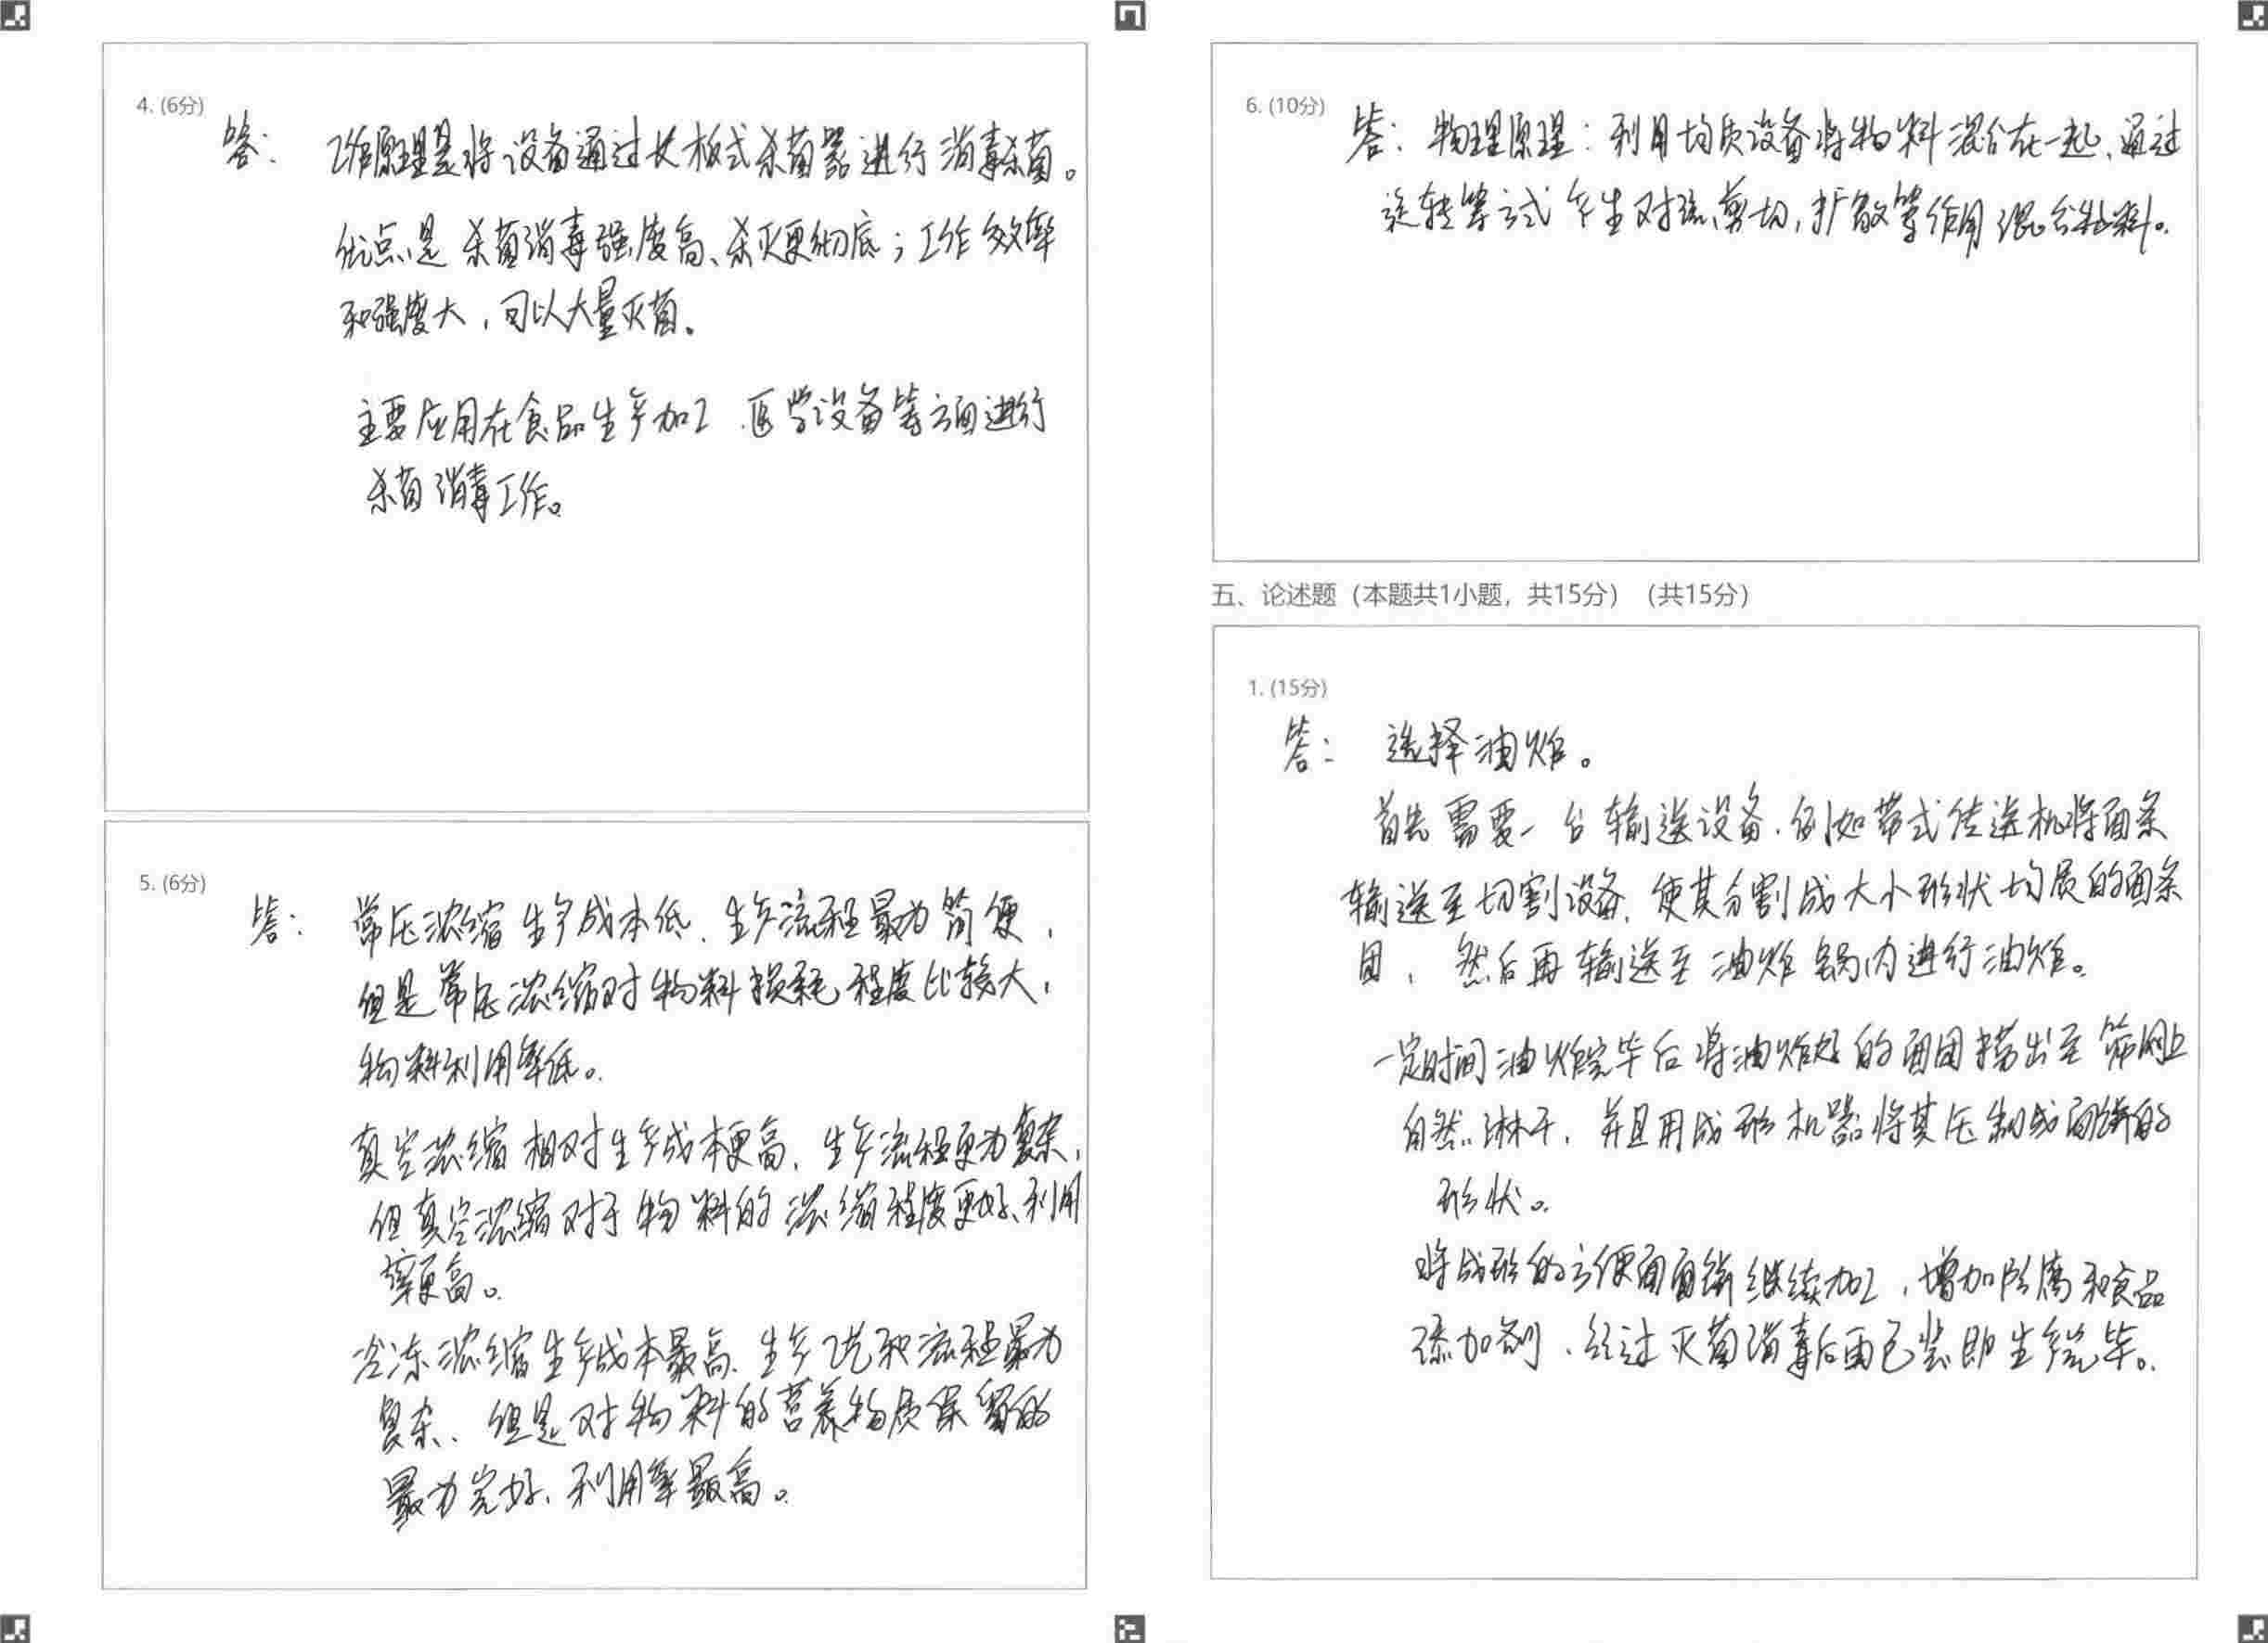 4. (6分)
答：工作原理是将设备通过长板式杀菌器进行消毒杀菌。
优点是杀菌消毒强度高、杀灭更彻底；工作效率
和强度大，可以大量灭菌。
主要应用在食品生产加工、医学设备等方面进行
杀菌消毒工作。
5. (6分)
答：常压浓缩生产成本低、生产流程最为简便，
但是常压浓缩对物料损耗程度比较大，
物料利用率低。
真空浓缩相对生产成本更高，生产流程更为复杂，
但真空浓缩对于物料的浓缩程度更好、利用
率更高。
冷冻浓缩生产成本最高、生产工艺和流程最为
复杂、但是对物料的营养物质保留的
最为完好、利用率最高。
6. (10分)
答：物理原理：利用均质设备将物料混合在一起、通过
旋转等方式产生对流、剪切，扩散等作用混合物料。
五、论述题（本题共1小题，共15分）（共15分）
1. (15分)
答：选择油炸。
首先需要一台输送设备、例如带式传送机将面条
输送至切割设备，使其分割成大小形状均质的面条
团，然后再输送至油炸锅内进行油炸。
一定时间油炸完毕后将油炸好的面团捞出至筛网上
自然淋干，并且用成形机器将其压制成面饼的
形状。
将成形的方便面面饼继续加工，增加防腐和食品
添加剂、经过灭菌消毒后再包装即生产完毕。